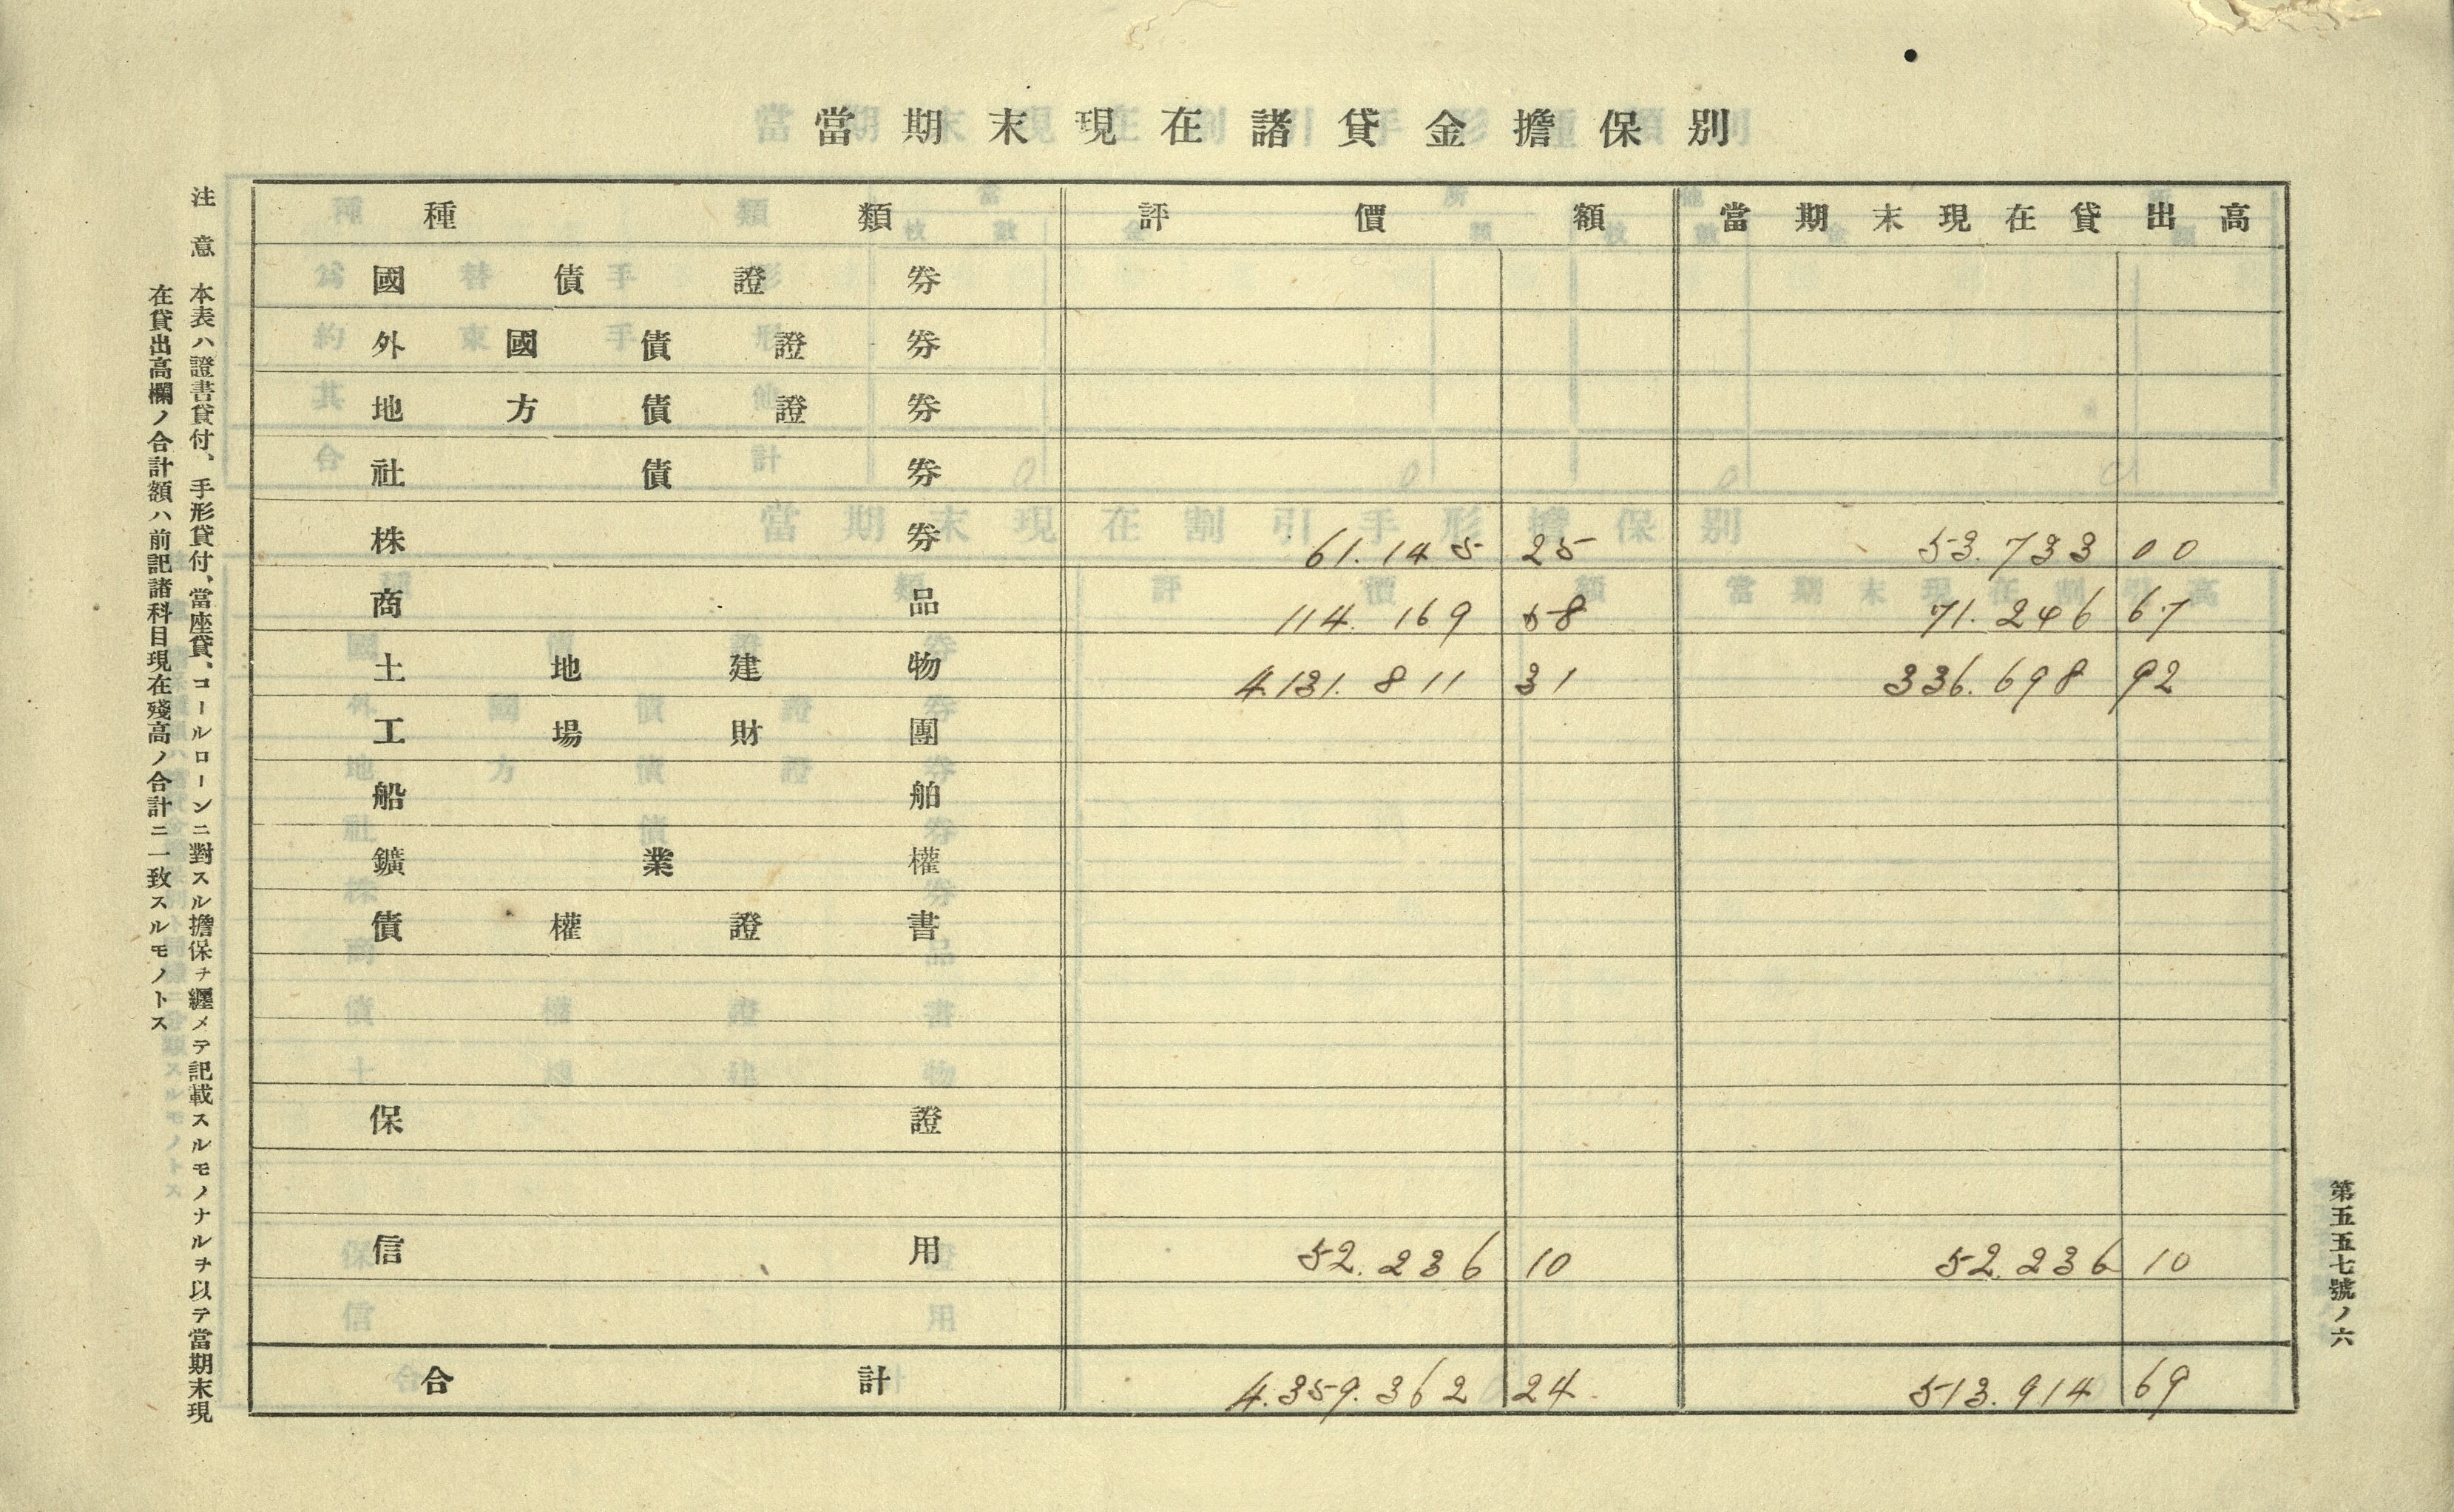 當期末現在諸貸金擔保別
種類 評價額 當期末現在貸出高
國債證券
外國債證券
地方債證券
社債券
株券 61.145 25 53.733 00
商品 114.169 58 71.246 67
土地建物 4.131.811 31 336.698 92
工場財團
船舶
鑛業權
債權證書
保證
信用 52.236 10 52.236 10
合計 4.359.362 24 513.914 69
第五五七號ノ六
注意 本表ハ證書貸付、手形貸付、當座貸、コールローンニ對スル擔保ヲ纒メテ記載スルモノナルヲ以テ當期末現
在貸出高欄ノ合計額ハ前記諸科目現在殘高ノ合計ニ一致スルモノトス